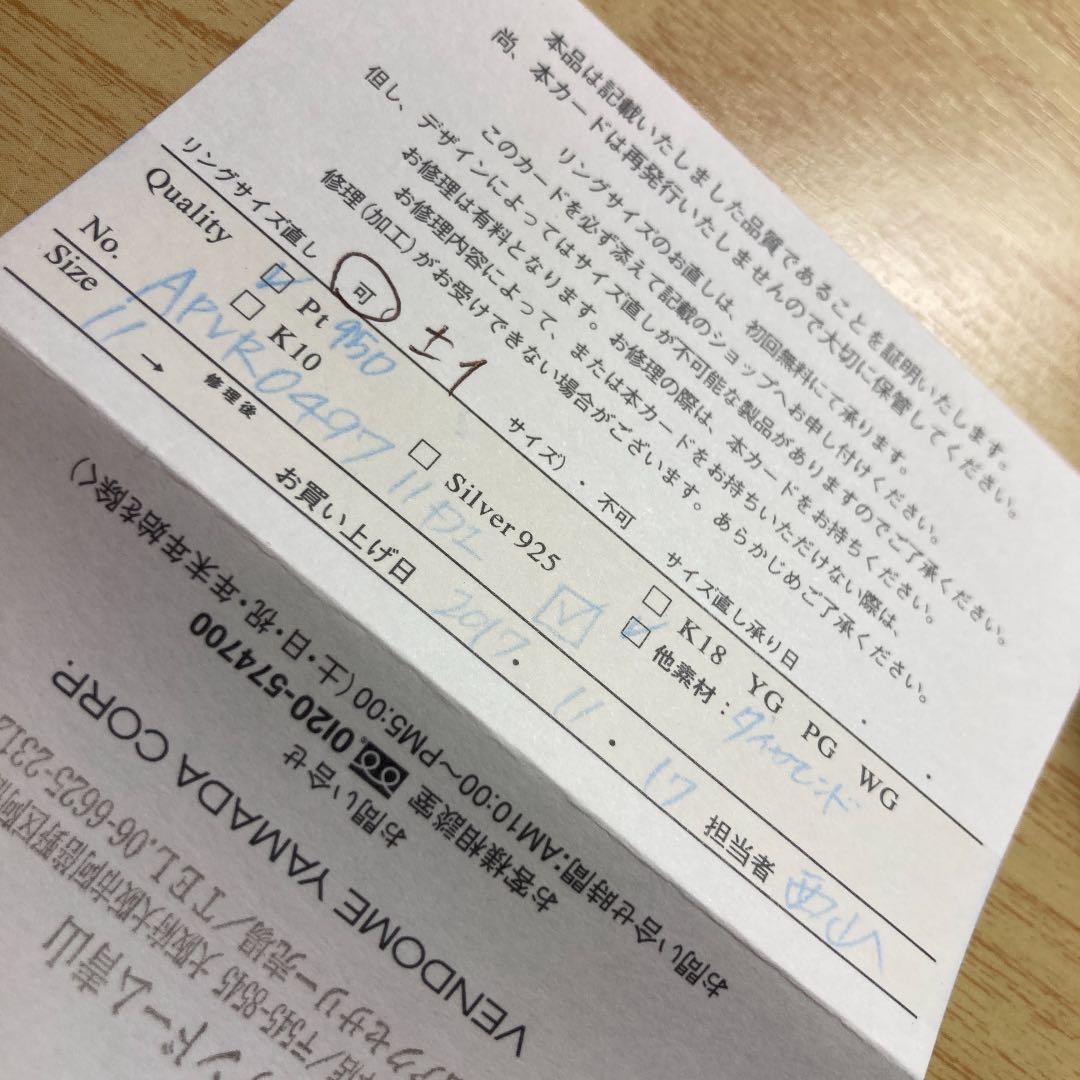 本品は記載いたしました品質であることを証明いたします。
尚、本カードは再発行いたしませんので大切に保管してください。
リングサイズのお直しは、初回無料にて承ります。
このカードを必ず添えて記載のショップへお申し付けください。
但し、デザインによってはサイズ直しが不可能な製品がありますのでご了承ください。
お修理は有料となります。お修理の際は、本カードをお持ちください。
お修理内容によって、または本カードをお持ちいただけない際は、
修理(加工)がお受けできない場合がございます。あらかじめご了承ください。
リングサイズ直し 可 ±1 サイズ)・不可 サイズ直し承り日 ・ ・
Quality ☑ Pt 950 ☐ Silver 925 ☐ K18 YG PG WG
☐ K10 ☑ 他素材:ダイヤモンド
No. APVR0497 11 ☑
Size 11 → 修理後
お買い上げ日 2017・11・17 担当者
お問い合せ
お客様相談室 0120-574700
お問い合せ時間:AM10:00〜PM5:00(土・日・祝・年末年始を除く)
VENDOME YAMADA CORP.
アクセサリー売場/TEL.06-6625-231
店/〒545-8545 大阪府大阪市阿倍野区阿
ンドーム青山